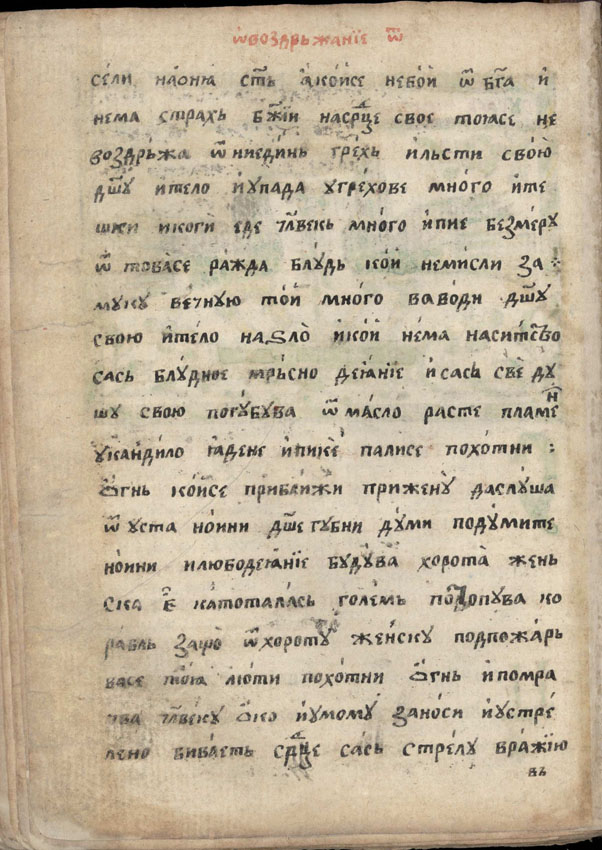 ѡвоздрьжанїе ѿ
сели наѡнꙗ стⷭ҇ь а҆кои҆се небои ѿ бг҃а и҆
нема страхь бж҃їи насрⷣце свое тоꙗсе не
воздрьжа ѿ ниединь грѣхь и҆льсти свою
дш҃ꙋ и҆тело иꙋпада ꙋгрехове много и҆те
шки икоги еде чл҃векь много и҆пие безмерꙋ
ѿ товасе ражда блꙋдь кои немисли за
мꙋкꙋ вечнꙋю тои много ваводи дш҃ꙋ
свою и҆тело наѕло и҆кои нема наситⷭ҇во
сась блꙋдное мрьсно деꙗнїе и҆сась све дꙋ
шꙋ свою погꙋбꙋва ѿ масло расте пламеⷩ҇
ꙋкандило ꙗдене и҆пике палисе похотни :
ѻ҆гнь кои҆се приближи приженꙋ даслꙋша
ѿ ꙋста нои҆ни дш҃егꙋбни дꙋми подꙋмите
нои҆ни илюбодеꙗнїе бꙋдꙋва хорота жень
ска є҆ катоталась големь потопꙋва ко
рабль защо ѿ хоротꙋ женскꙋ подпожарь
васе тоꙗ люти похотни ѻ҆гнь и҆помра
чва чл҃векꙋ ѻ҆ко иꙋмомꙋ заноси иꙋстре
лено биваеть срⷣце сась стрелꙋ вражїю
въ